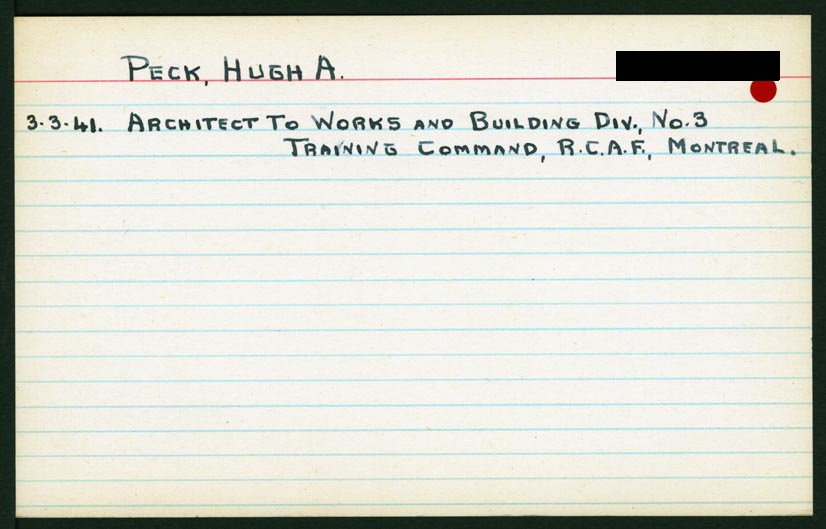 PECK, HUGH A.
3-3-41. ARCHITECT TO WORKS AND BUILDING DIV., NO.3
TRAINING COMMAND, R.C.A.F., MONTREAL.